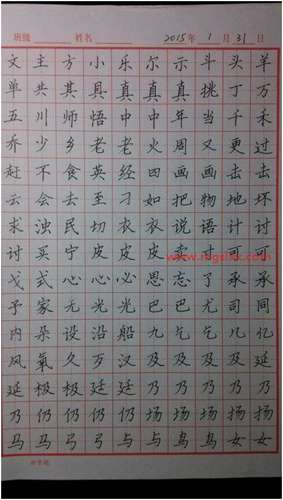 班级 姓名 2015年 1月 31日
文主方小乐尔示斗头羊
单共其具真真真挑丁万
五川师悟中中年当千
乔少乡老老火周又更过
赶不食英经四画画击击
云会去至刁如把物地坏
求浊民切衣衣说语计可
讨买宁皮皮皮卖寸可可
戈式心心心思忘了承承
予家无光光巴巴尤司同
内朵设沿船九乞乞几亿
风氧久万汉及及及及延
延极极廷廷乃乃乃乃乃
乃仍仍仍仍场场扬扬扬
马马弓弓与与鸟鸟女女